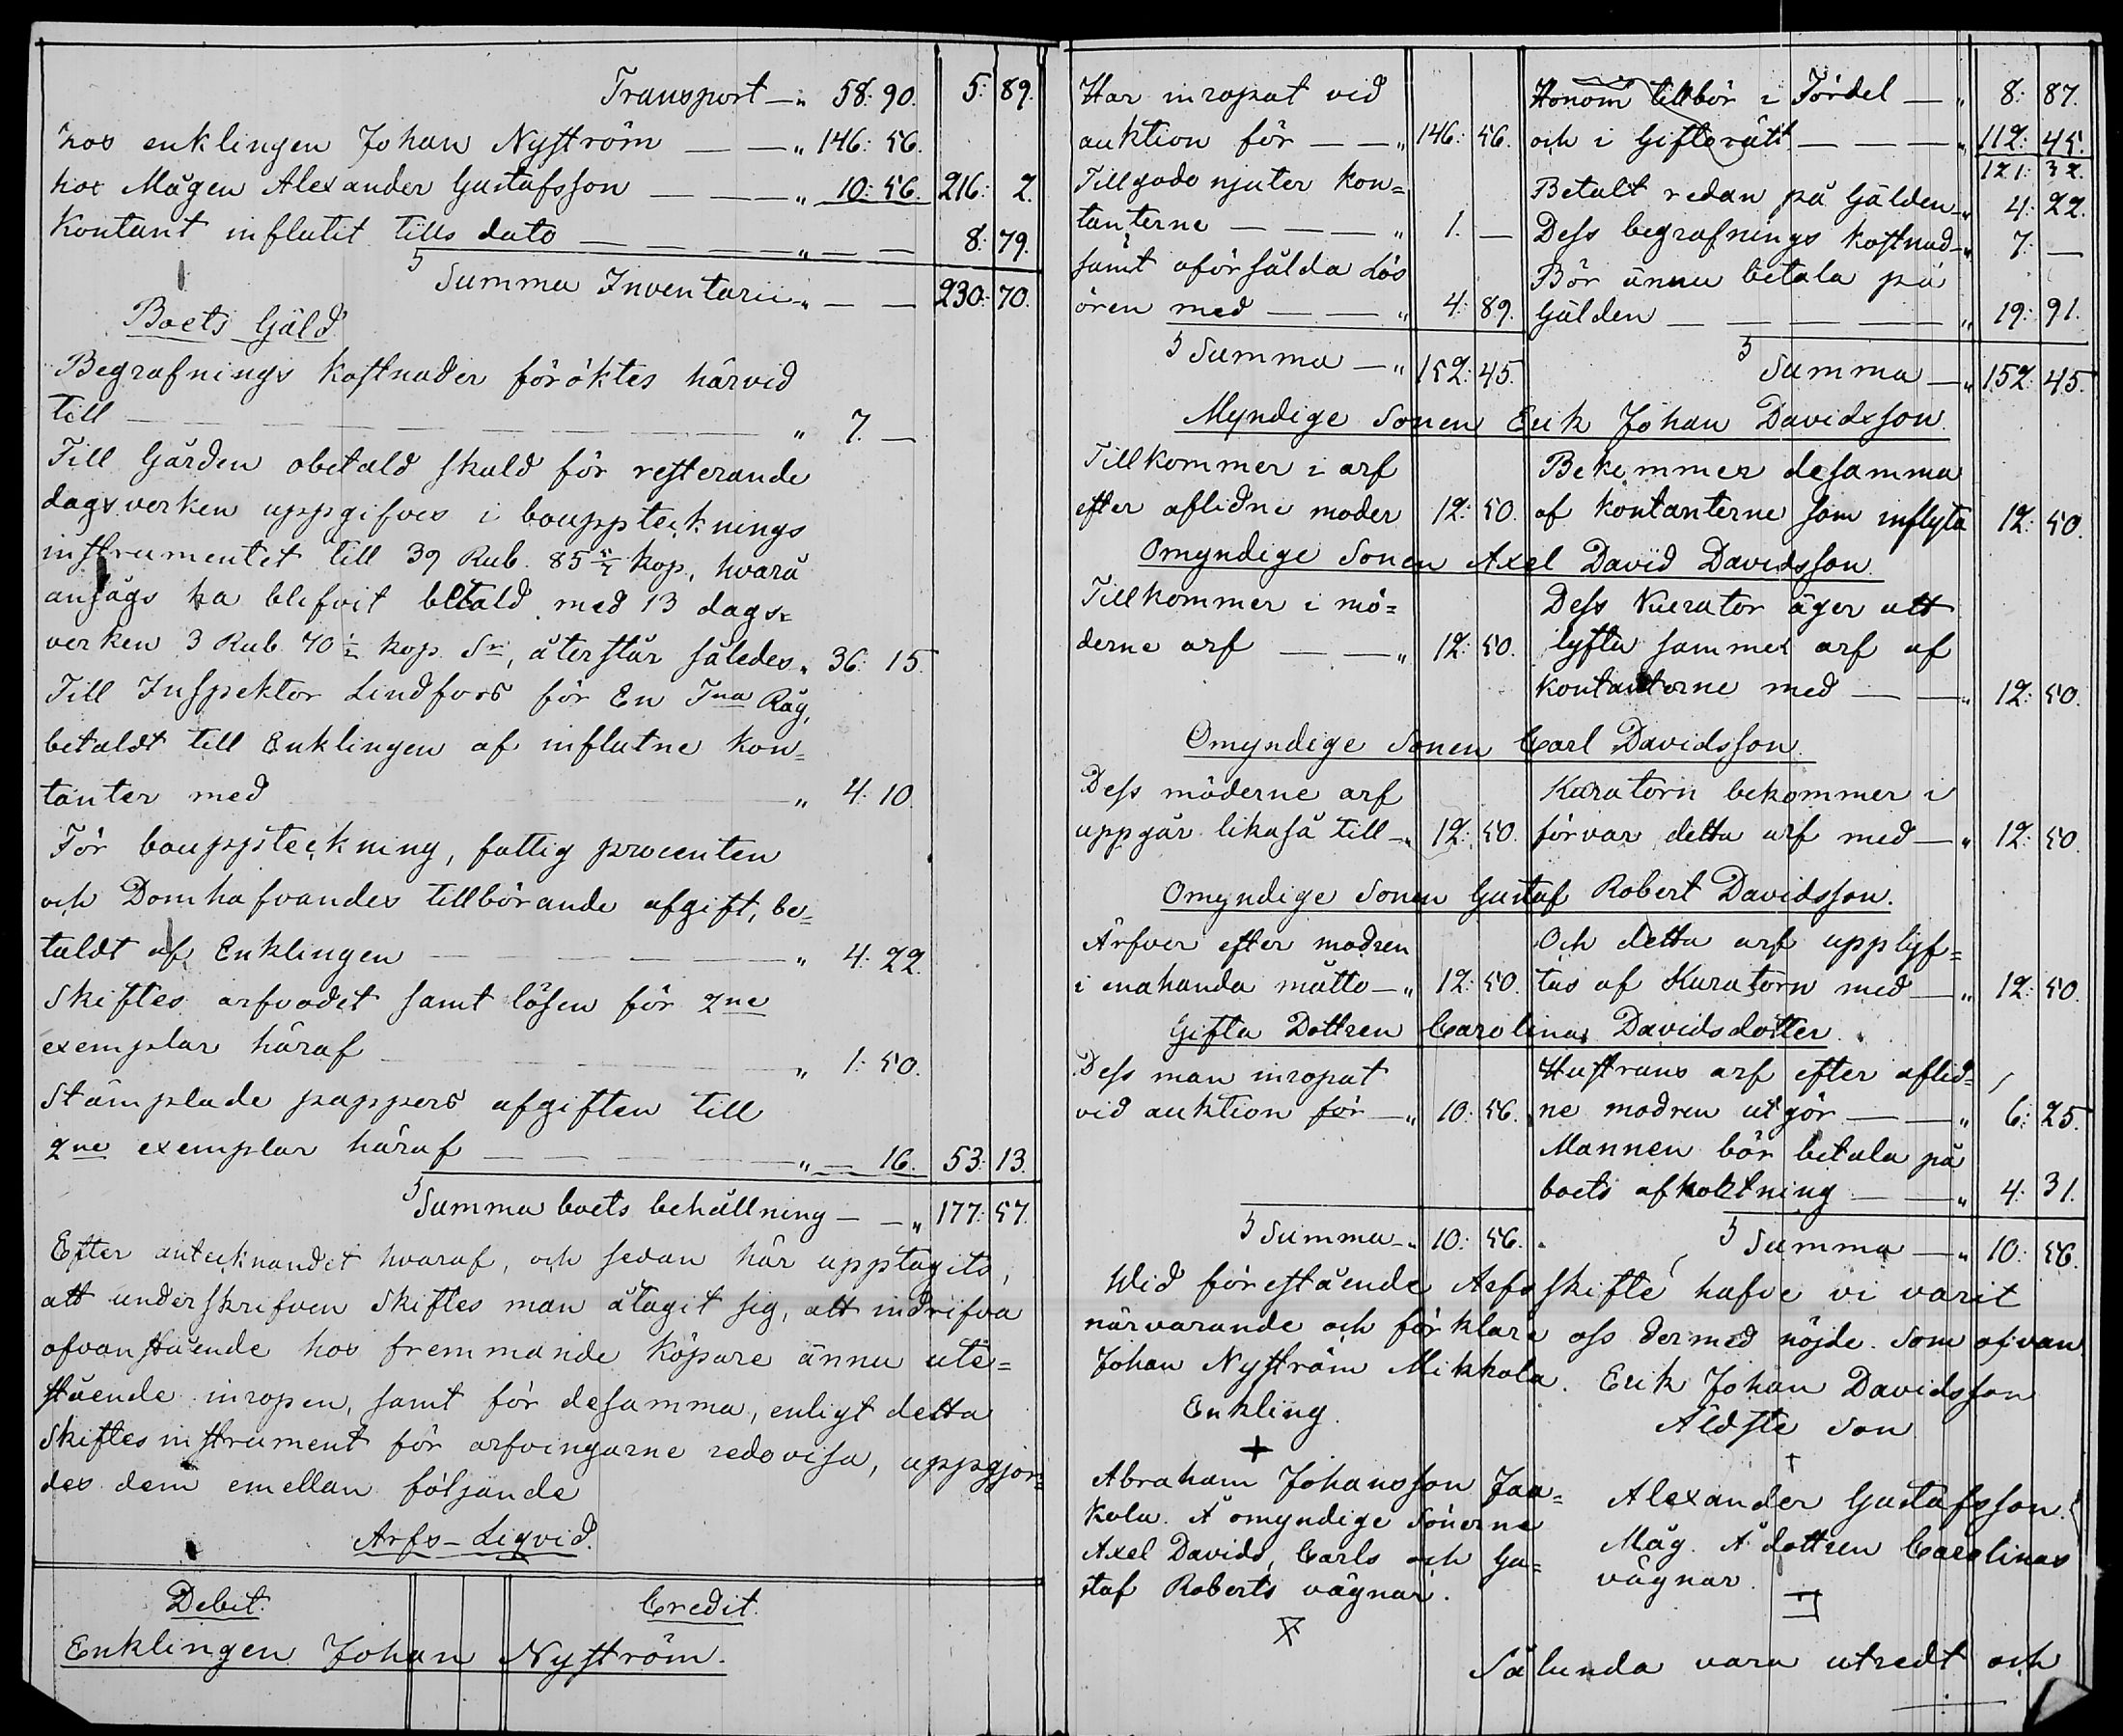 Transport —„ 58: 90. 5: 89.
hos enklingen Johan Nyström — —„ 146: 56.
hos Mågen Alexander Gustafsson — — —„ 10: 56. 216: 2.
Kontant influtit tills dato — — — — —„ — — 8: 79.
Summa Inventarii „ — — 230: 70.
Boets Gäld
Begrafnings kostnader föröktes härvid
till — — — — — — — „ 7. —
Till Gården obetald skuld för resterande
dagsverken uppgifves i bouppteknings
instrumentet till 39 Rub. 85 kop, hvara
ansågs ha blifvit betald med 13 dags-
verken 3 Rub. 70 ½ kop Sr, återstår således „ 36: 15.
Till Inspektor Lindfors för En Tna Råg,
betaldt till Enklingen af influtne kon-
tanter med „ 4: 10.
För bouppteckning, fattig procenten
och Domhafvandes tillbörande afgift, be-
taldt af Enklingen — — — — „ 4: 22.
Skiftes arfvodet samt lösen för 2ne
exemplar häraf — „ 1: 50.
Stämplade pappers afgiften till
2ne exemplar häraf — — — — „ — 16. 53: 13.
Summa boets behållning — —„ 177: 57.
Efter antecknandet hvaraf, och sedan här upptagits,
att underskrifven Skiftes man åtagit sig, att indrifva
ofvanstående hos fremmande köpare ännu ute-
stående inropen, samt för desamma, enligt detta
Skiftesinstrument för arfvingarne redovisa, uppgjor-
des dem emellan följande
Arfs-Liqvid.
Debit. Credit.
Enklingen Johan Nyström.
Har inropat vid
auktion för — —„ 146: 56.
Tillgodo njuter kon-
tanterne — — — „ 1. —
samt oförsålda Lös
ören med — — „ 4: 89.
Summa —„ 152: 45.
Honom tillbör i Fördel —„ 8: 87.
och i Giftorätt — — — —„ 112: 45.
121: 32.
Betalt redan på Gälden —„ 4: 22.
Dess begrafnings kostnad —„ 7: —
Bör ännu betala på
Gälden — — — — — „ 19: 91.
Summa —„ 152: 45.
Myndige Sonen Erik Johan Davidsson.
Tillkommer i arf
efter aflidne moder 12: 50.
Bekommer desamma
af kontanterne som inflyta 12: 50.
Omyndige Sonen Axel David Davidsson.
Tillkommer i mö-
derne arf — —„ 12: 50.
Dess Kurator äger att
lyfta samma arf af
kontanterne med — —„ 12: 50.
Omyndige Sonen Carl Davidsson.
Dess möderne arf
uppgår likaså till —„ 12: 50.
Kuratorn bekommer i
förvar detta arf med —„ 12: 50.
Omyndige Sonen Gustaf Robert Davidsson.
Ärfver efter modren
i enahanda måtto —„ 12: 50.
Och detta arf upplyf-
tas af Kuratorn med —„ 12: 50.
Gifta Dottren Carolina Davidsdotter.
Dess man inropat
vid auktion för —„ 10: 56.
Hustruns arf efter aflid-
ne modren utgör — —„ 6: 25.
Mannen bör betala på
boets afkortning — —„ 4: 31.
Summa —„ 10: 56.
Summa —„ 10: 56.
Wid förestående Arfsskifte hafve vi varit
närvarande och förklare oss dermed nöjde. Som ofvan.
Johan Nyström Mikkola.
Enkling.
Erik Johan Davidsson
Äldste son
Abraham Johansson Jaa-
kola. Å omyndige Sönerne
Axel Davids, Carls och Gu-
staf Roberts vägnar.
Alexander Gustafsson.
Måg. Å dottren Carolinas
vägnar.
Sålunda vara utredt och